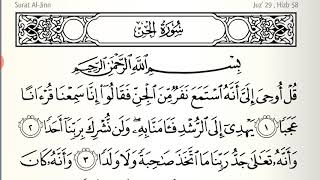 Surat Al-Jinn Juz' 29 , Hizb 58
سُورَةُ الجِنِّ
بِسْمِ اللَّهِ الرَّحْمَٰنِ الرَّحِيمِ
قُلْ أُوحِىَ إِلَىَّ أَنَّهُ ٱسْتَمَعَ نَفَرٌ مِّنَ ٱلْجِنِّ فَقَالُوٓا۟ إِنَّا سَمِعْنَا قُرْءَانًا
عَجَبًا ١ يَهْدِىٓ إِلَى ٱلرُّشْدِ فَـَٔامَنَّا بِهِۦ وَلَن نُّشْرِكَ بِرَبِّنَآ أَحَدًا ٢
وَأَنَّهُۥ تَعَٰلَىٰ جَدُّ رَبِّنَا مَا ٱتَّخَذَ صَٰحِبَةً وَلَا وَلَدًا ٣ وَأَنَّهُۥ كَانَ